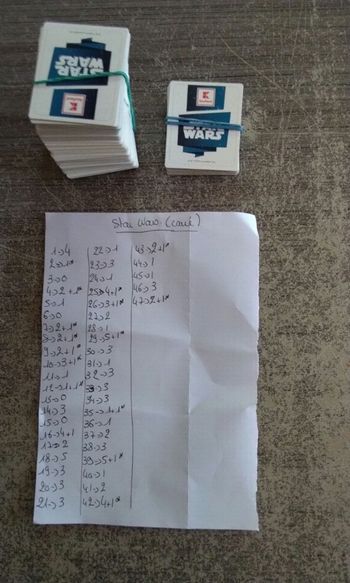 STAR WARS
STAR WARS
Star Wars (carré)
1→4
2→1*
3→0
4→2+1*
5→1
6→0
7→2+1*
8→2+1*
9→2+1*
10→3+1*
11→1
12→1+1*
13→0
14→3
15→0
16→4+1
17→2
18→5
19→3
20→3
21→3
22→1
23→3
24→1
25→4+1*
26→3+1*
27→2
28→1
29→5+1*
30→3
31→1
32→3
33→3
34→3
35→1+1*
36→1
37→2
38→3
39→5+1*
40→1
41→2
42→4+1*
43→2+1*
44→1
45→1
46→3
47→2+1*